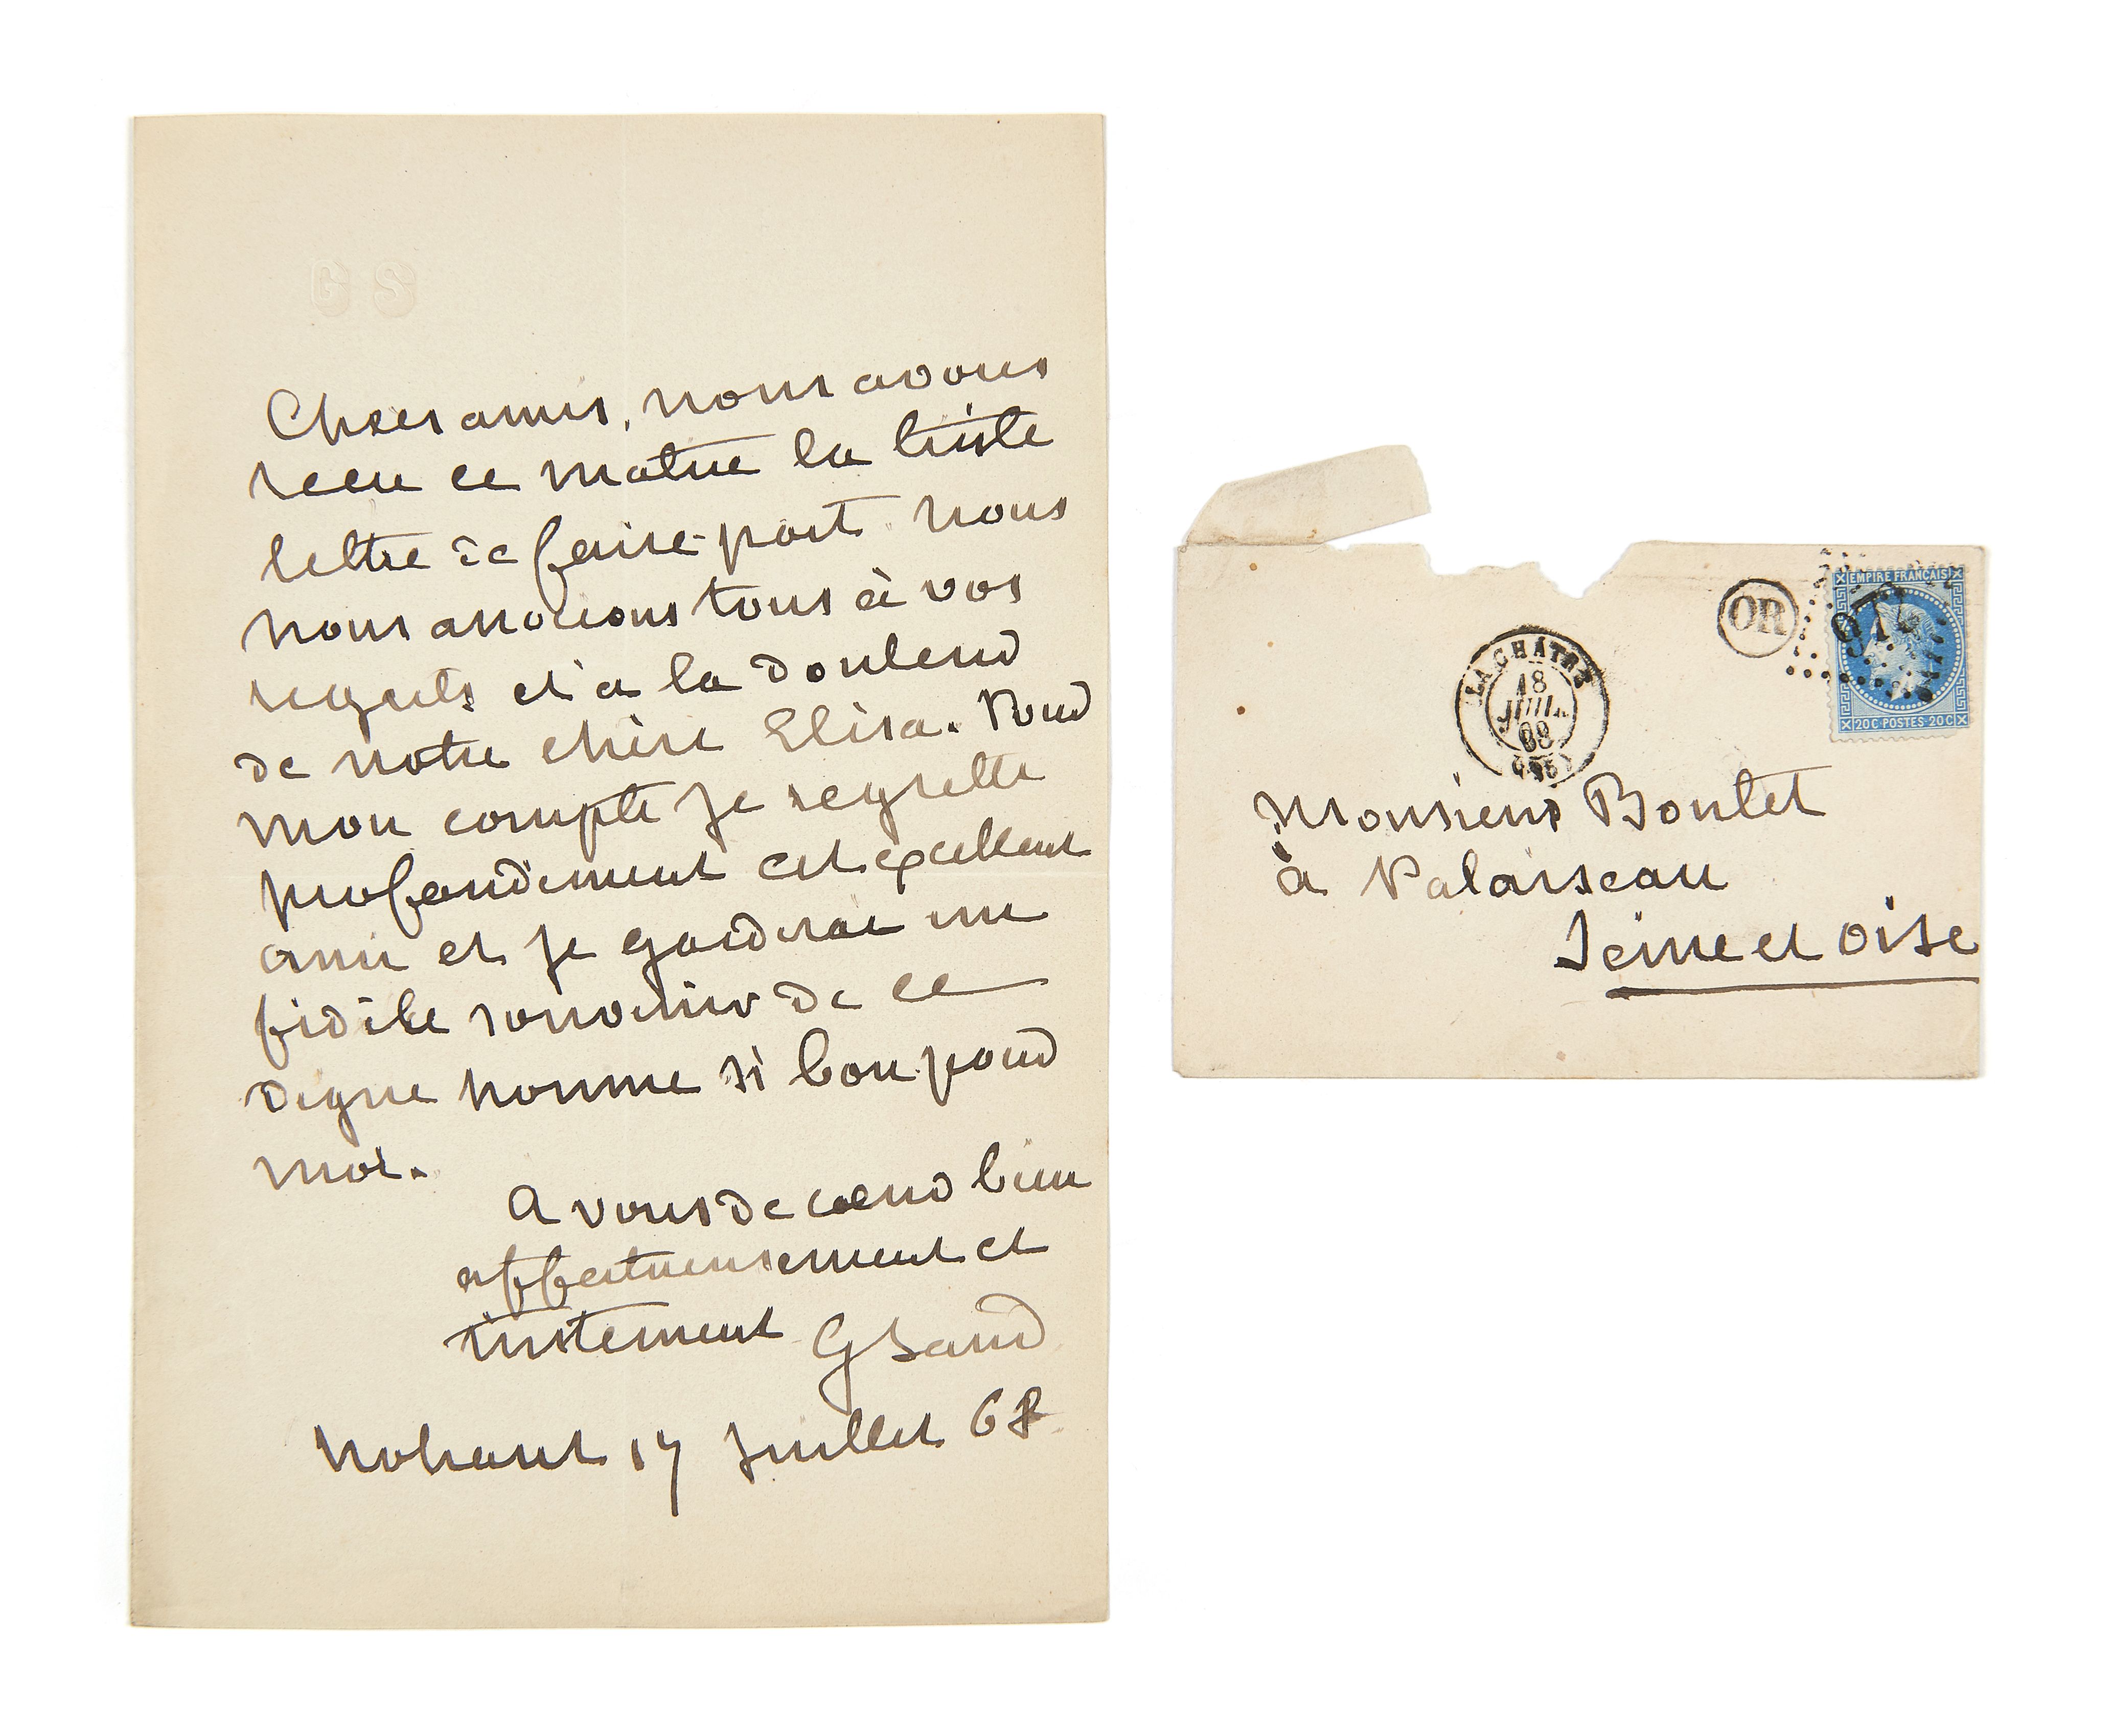 G S
Chers amis, nous avons
recu ce matin la triste
lettre de faire-part. Nous
nous associons tous à vos
regrets et à la douleur
de notre chère Elisa. Pour
mon compte je regrette
profondement cet excellent
ami et je garderai un
fidèle souvenir de ce
digne homme si bon pour
moi.
A vous de coeur bien
affectueusement et
tristement GSand
Nohant 17 juillet 68
OR
EMPIRE FRANÇAIS
20C POSTES 20C
LA CHÂTRE
18
JUIL.
68
Monsieur Boutet
à Palaiseau
Seine et Oise